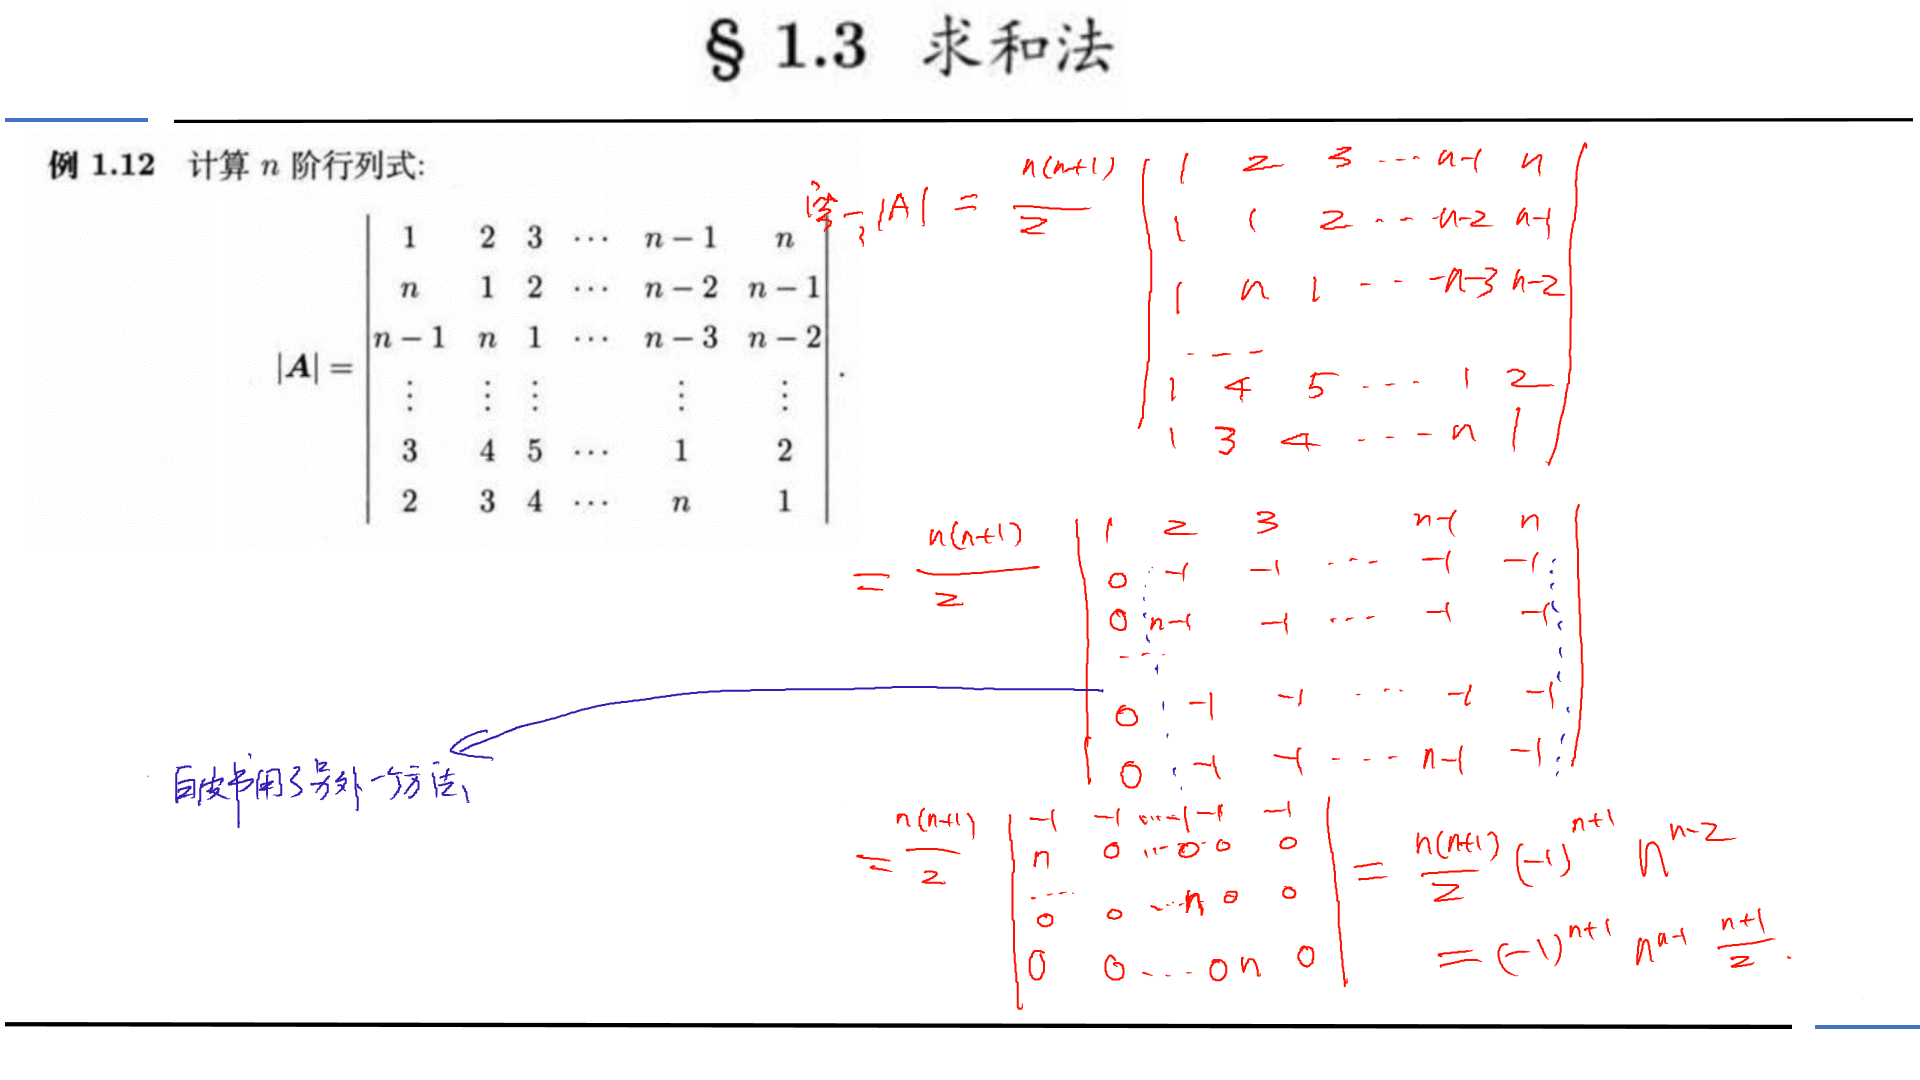 § 1.3 求和法
例 1.12 计算 n 阶行列式:
|A| =
1 2 3 ⋯ n − 1 n
n 1 2 ⋯ n − 2 n − 1
n − 1 n 1 ⋯ n − 3 n − 2
⋮ ⋮ ⋮ ⋮ ⋮
3 4 5 ⋯ 1 2
2 3 4 ⋯ n 1
.
|A| = n(n+1)/2
1 2 3 ⋯ n-1 n
1 1 2 ⋯ n-2 n-1
1 n 1 ⋯ n-3 n-2
⋯
1 4 5 ⋯ 1 2
1 3 4 ⋯ n 1
= n(n+1)/2
1 2 3 n-1 n
0 -1 -1 ⋯ -1 -1
0 n-1 -1 ⋯ -1 -1
⋯
0 -1 -1 ⋯ -1 -1
0 -1 -1 ⋯ n-1 -1
白皮书用了另外一个方法、
= n(n+1)/2
-1 -1 ⋯ -1 -1 -1
n 0 ⋯ 0 0 0
⋯
0 0 ⋯ n 0 0
0 0 ⋯ 0 n 0
= n(n+1)/2 (-1)^{n+1} n^{n-2}
= (-1)^{n+1} n^{n-1} n+1/2 .